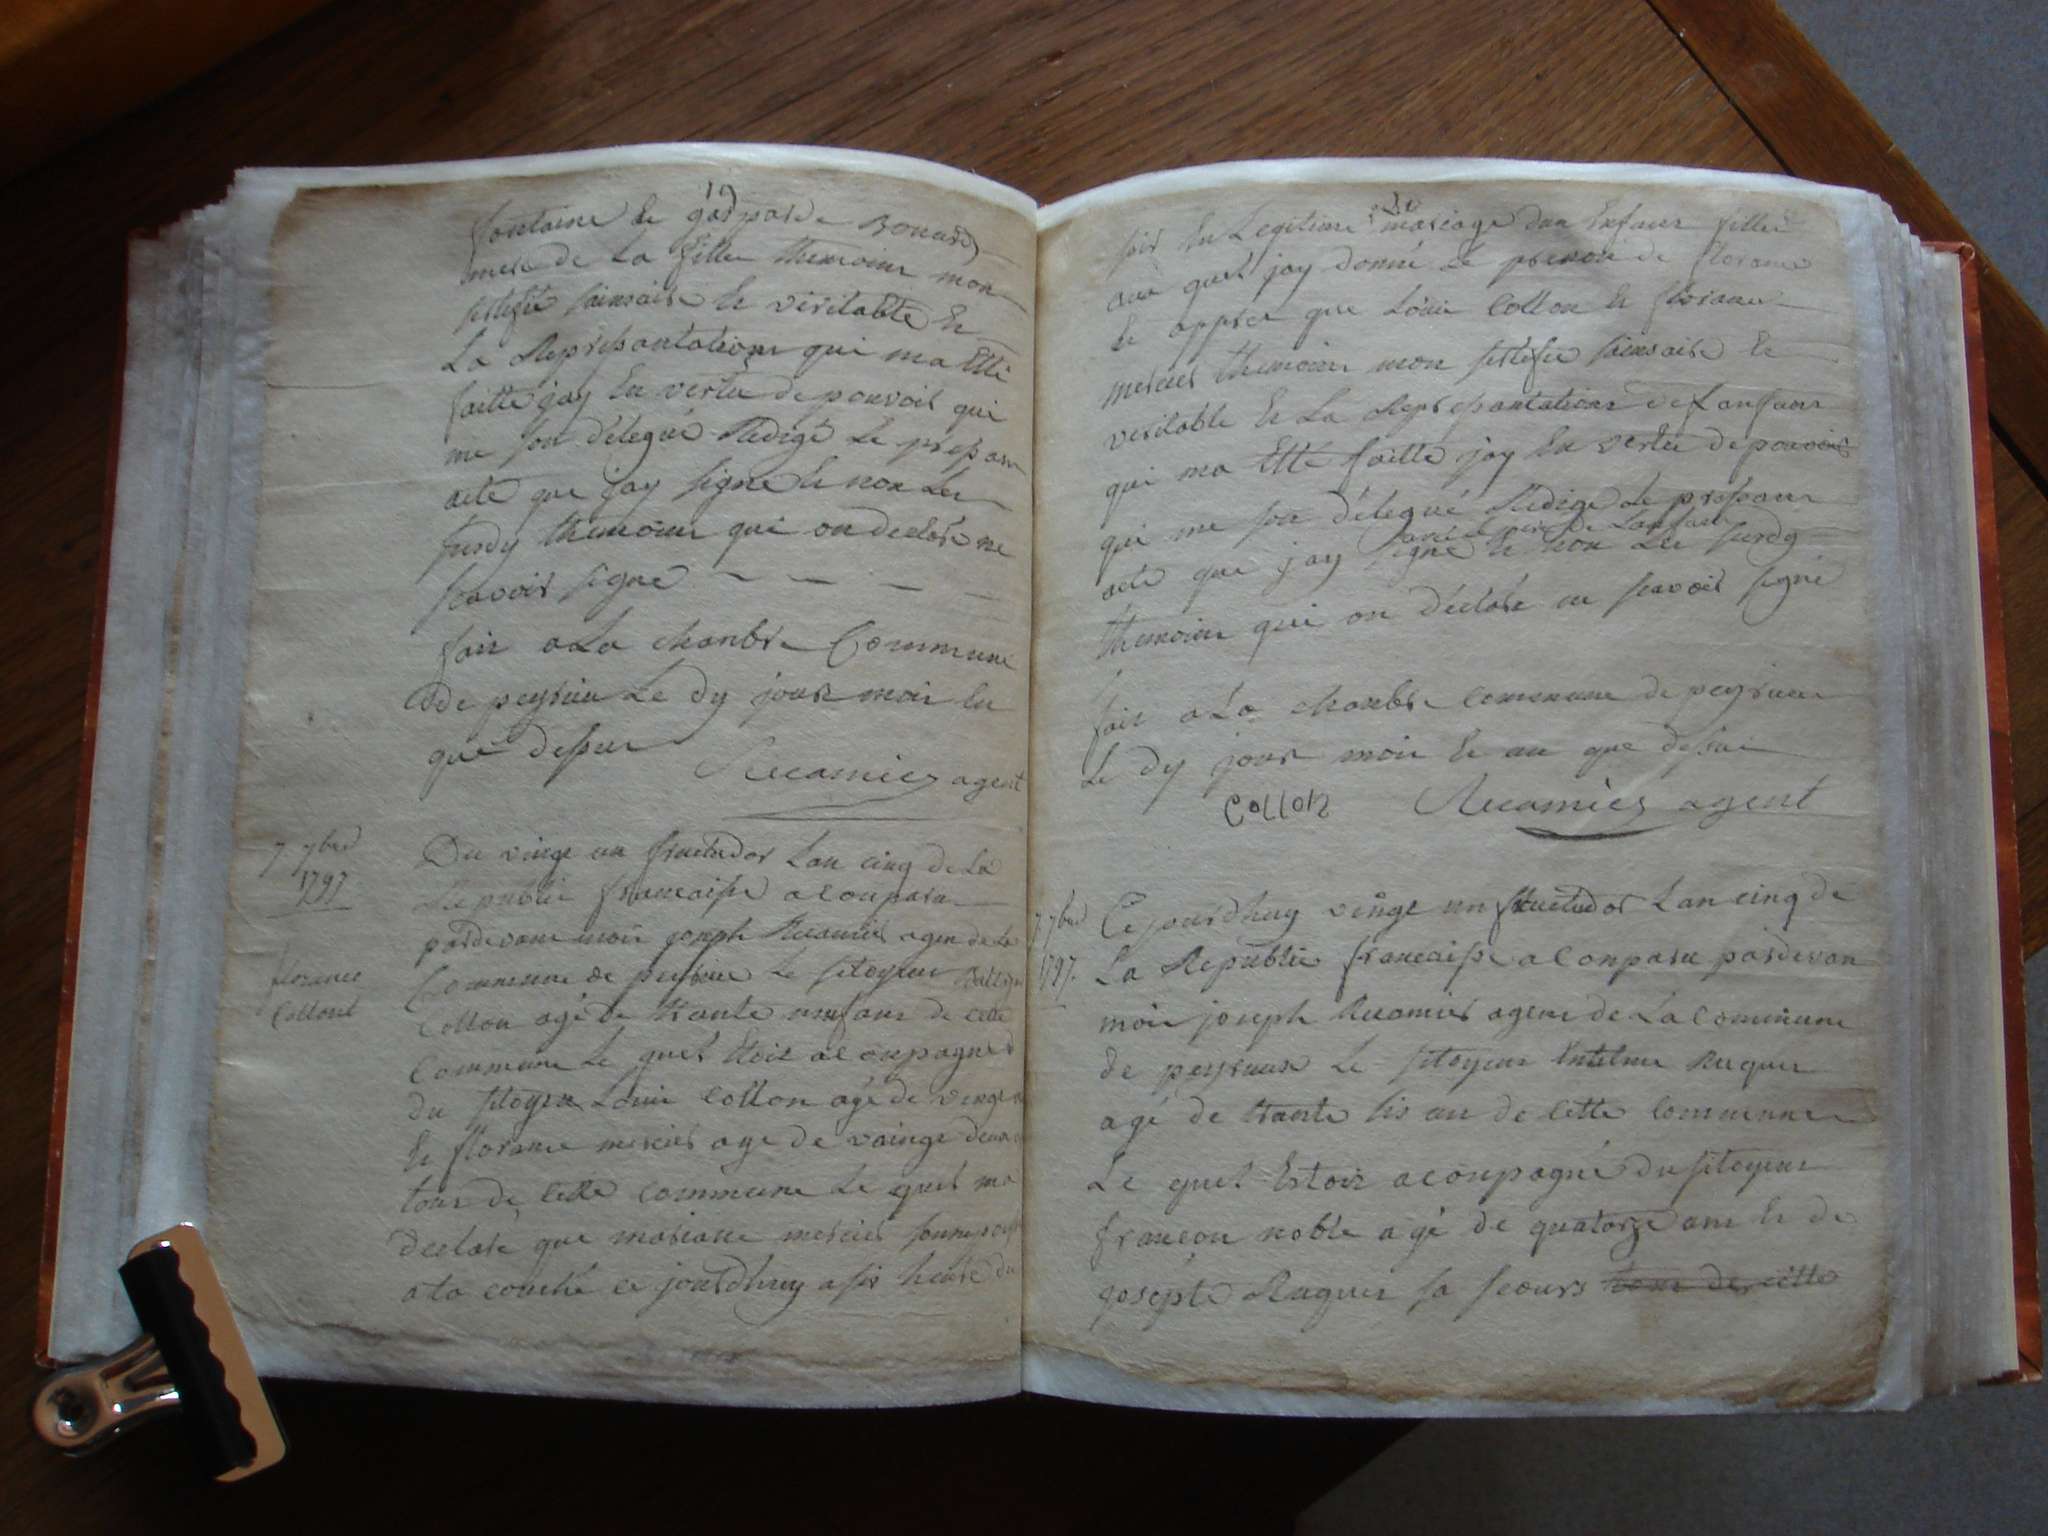 19
fontaine he gasparde Bonard
mere de La fille themoins mon
sertefié sainsaire he veritable he
La Represantations qui ma Etté
faitte jay En vertu de pouvoir qui
me son délegué Redigé Le presans
acte que jay signé he non Les
susdy themoins qui on declaré ne
scavoir signe
fait a La chanbre Commune
de peyrieu Le dy jour moir En
que dessus
Recamier agent
7 7bre
1797
florance
Collont
Du vingt un fructudor Lan cinq de La
Republic francaisse a conparu
pardevant moir joseph Recamier agen de La
Commune de peyrieu Le sitoyens
Collon agé de trante neuf ans de cette
commune Le quel Etoit aconpagné
du sitoyen Louis Collon agé de vingt
he florance mercier age de vainge deux
tous de cette commune Le quel ma
declaré que mariane mercier
a ta couché ce jourdhuy a sis heure du
20
soir En Legitime mariage dun Enfans fille
aux quel jay donné Le prenon de florance
he apprer que Louis Collon he florance
mercier themoins mon sertefié sainsaire he
veritable he La Represantations de Lanfans
qui ma Etté faitte jay En vertu de pouvoir
qui me son délegué Redigé Le presans
avec le pere de Lanfans
acte que jay signé he non Les susdy
themoins qui on déclaré ne scavoir signé
fait a La chanbre commune de peyrieu
Le dy jour moir he an que dessus
Collon Recamier agent
7 7bre
1797.
Ce jourdhuy vingt un fructudor Lan cinq de
La Republic francaisse a conparu pardevan
moir joseph Recamier agens de La commune
de peyrieux Le sitoyens Entelme Ruquer
agé de trante sis an de cette commune
Le quel Estoit aconpagné du sitoyens
francois noble agé de quatorze ans he de
josepte Ruquer sa soeurs tous de cette